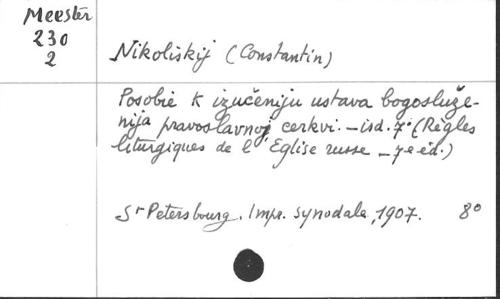 Meester
230
2
Nikoliskij (Constantin)
Posobie k izučeniju ustava bogosluže-
nija pravoslavnoj cerkvi. _ isd. 7º (Règles
liturgiques de l'Eglise russe _ 7e éd.)
St Petersbourg. Impr. synodale, 1907. 8º